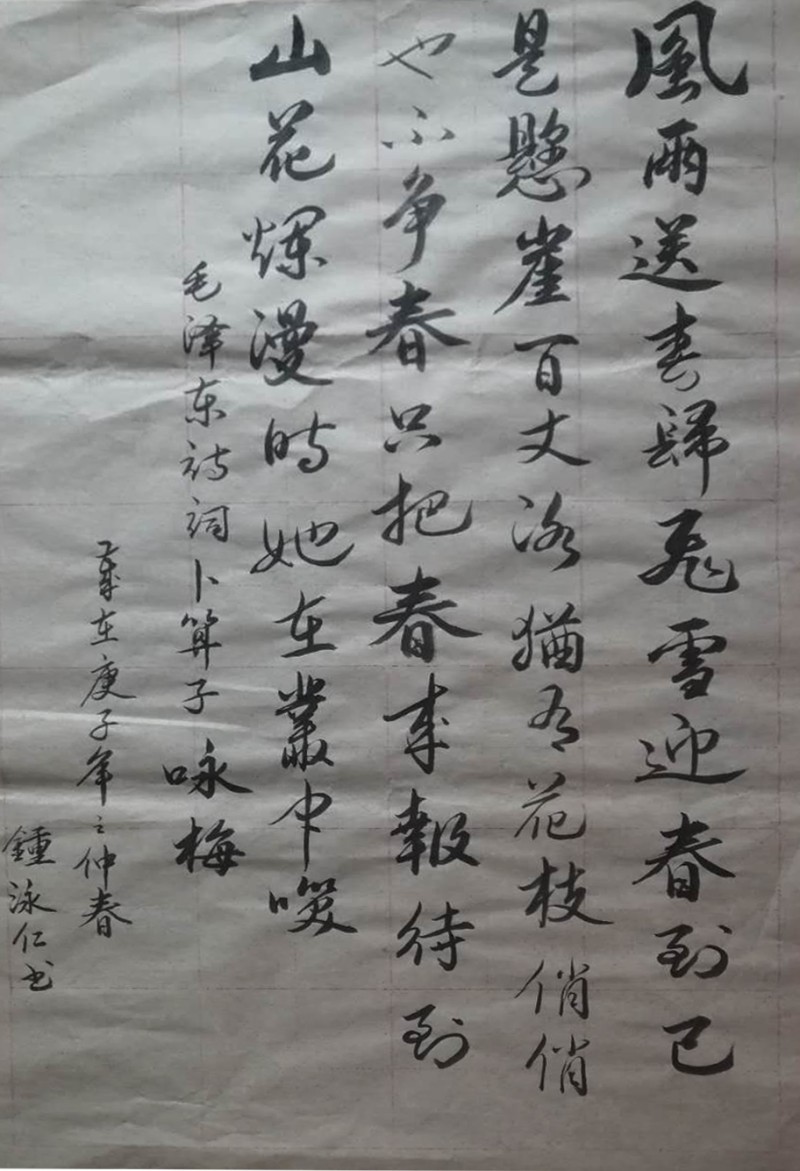 風雨送春歸飛雪迎春到已
是懸崖百丈冰猶有花枝俏俏
也不争春只把春来報待到
山花爛漫時她在叢中㗛
毛泽东诗词卜算子咏梅
歲在庚子年之仲春
鍾泳仁书